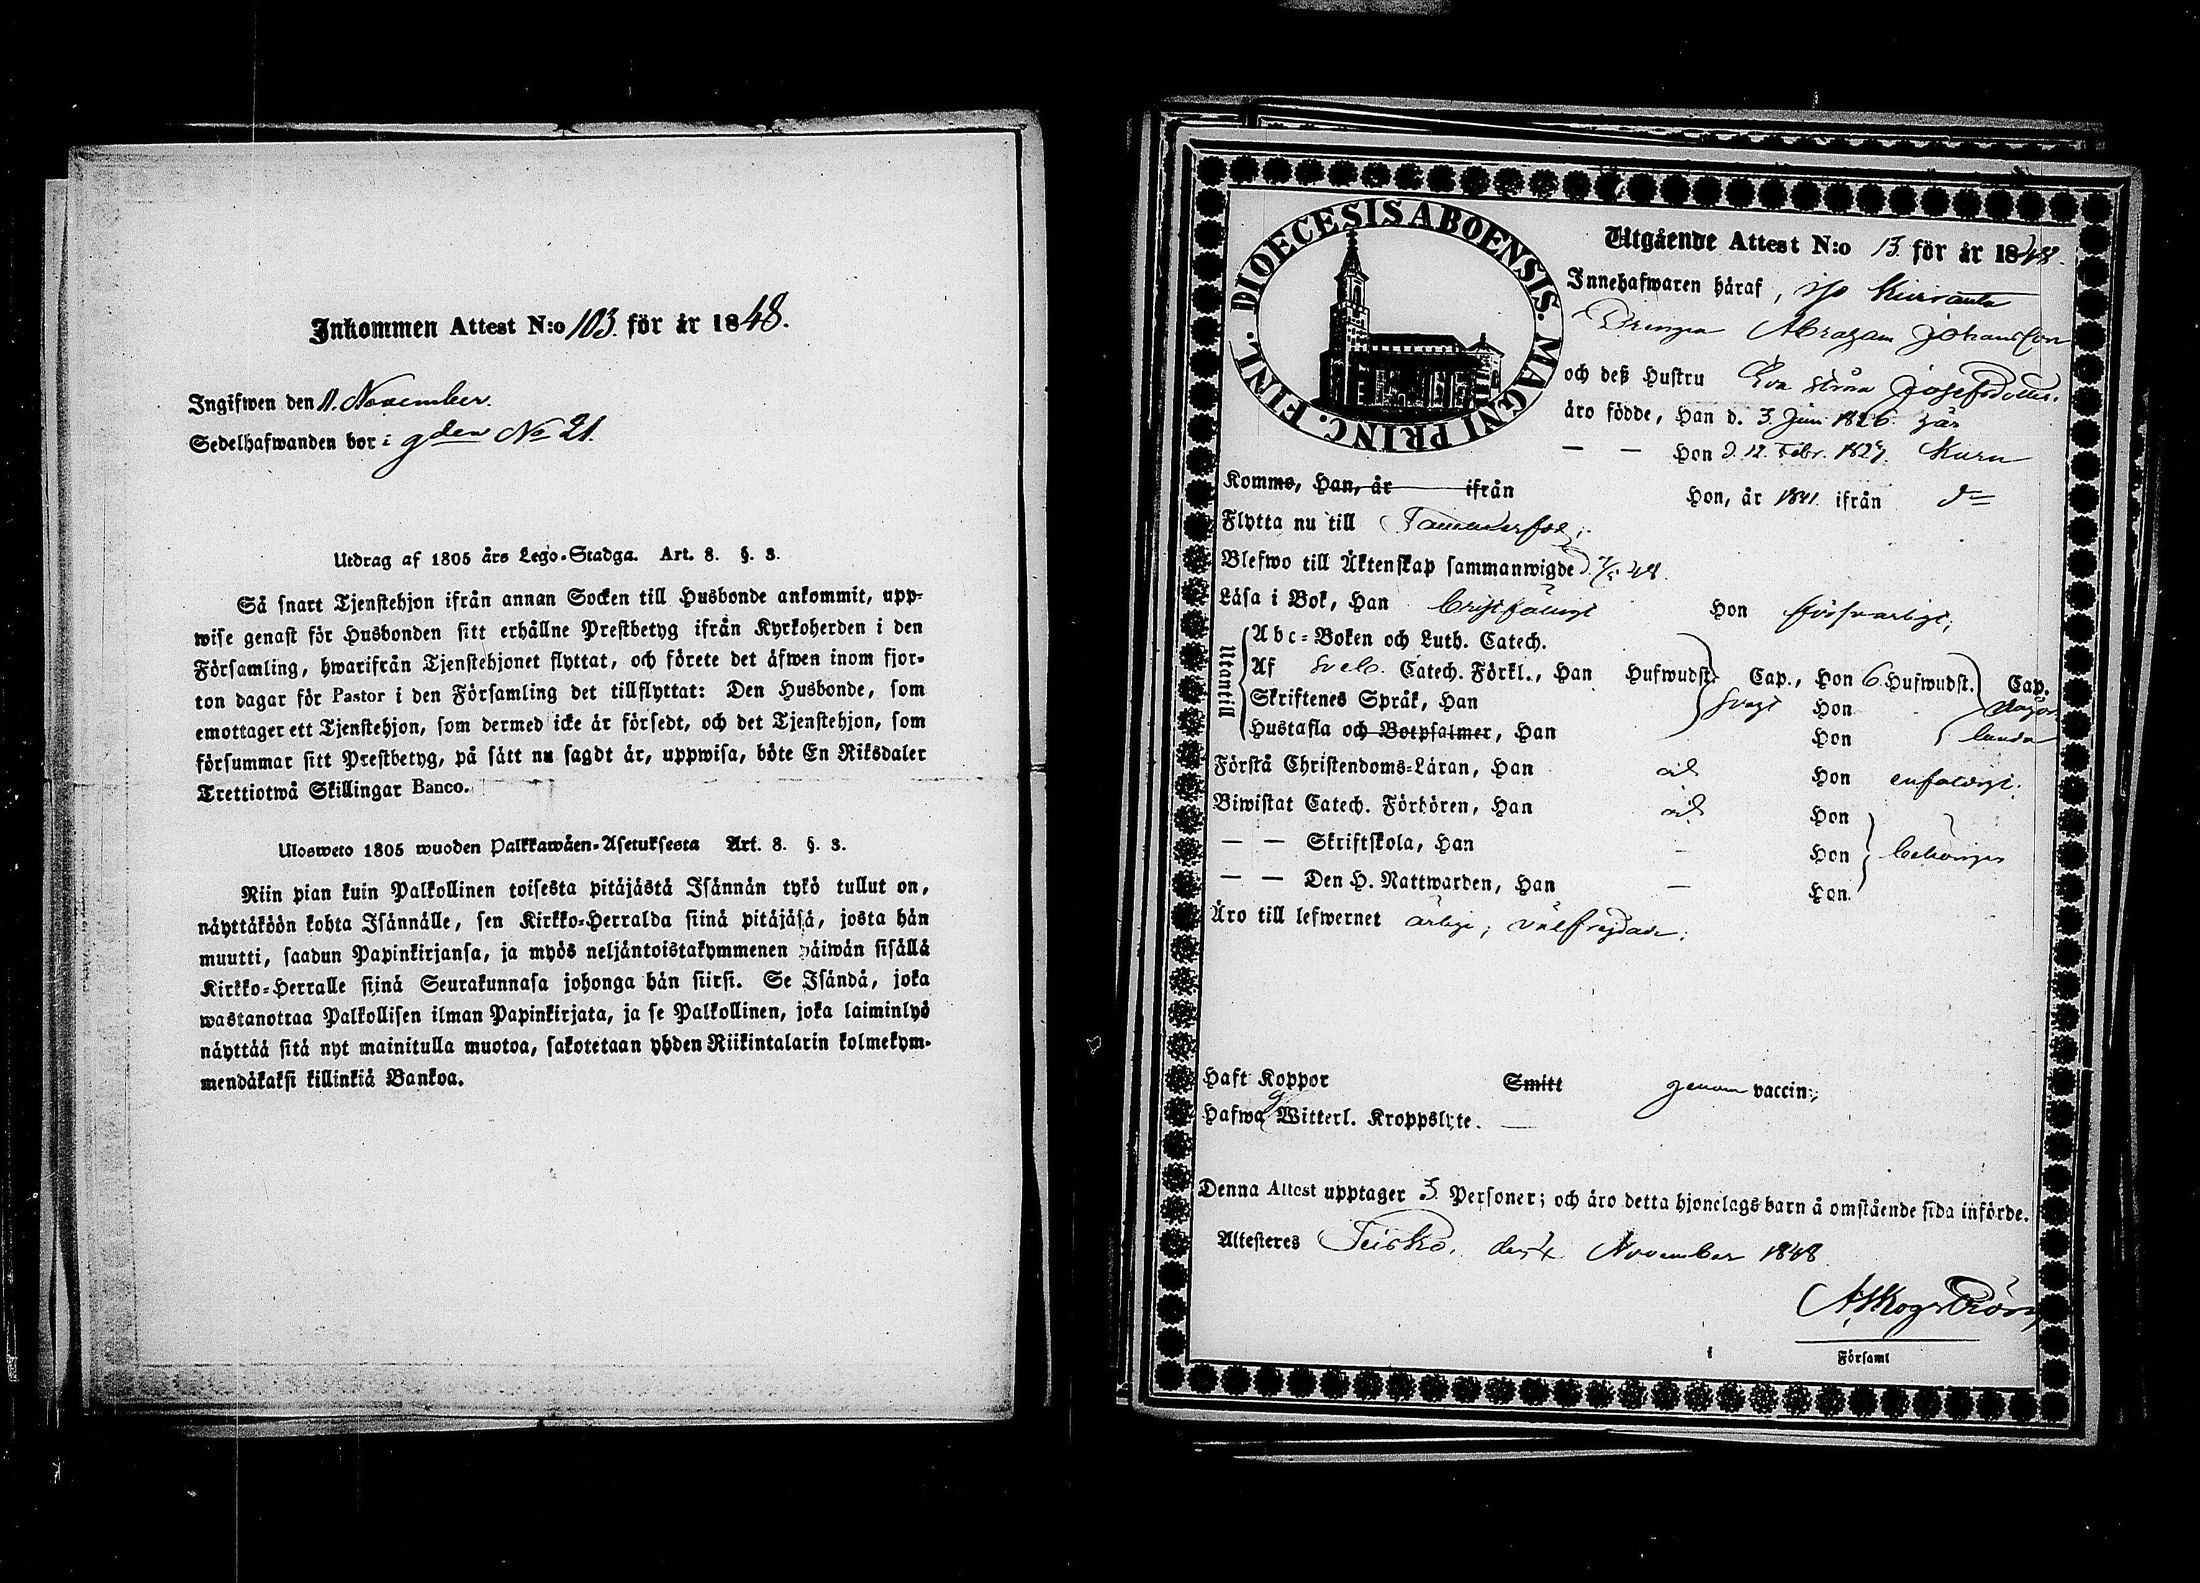 Inkommen Attest N:o 103. för år 1848.
Ingifwen den 11. November.
Sedelhafwanden bor i gden No 21.
Utdrag af 1805 års Lego-Stadga. Art. 8. §. 3.
Så snart Tjenstehjon ifrån annan Socken till Husbonde ankommit, upp-
wise genast för Husbonden sitt erhållne Prestbetyg ifrån Kyrkoherden i den
Församling, hwarifrån Tjenstehjonet flyttat, och förete det äfwen inom fjor-
ton dagar för Pastor i den Församling det tillflyttat: Den Husbonde, som
emottager ett Tjenstehjon, som dermed icke är försedt, och det Tjenstehjon, som
försummar sitt Prestbetyg, på sätt nu sagdt är, uppwisa, böte En Riksdaler
Trettiotwå Skillingar Banco.
Ulosweto 1805 wuoden Palkkawäen-Asetuksesta Art. 8. §. 3.
Niin pian kuin Palkollinen toisesta pitäjästä Isännän tykö tullut on,
näyttäköön kohta Isännälle, sen Kirkko-Herralda siinä pitäjäsä, josta hän
muutti, saadun Papinkirjansa, ja myös neljäntoistakymmenen päiwän sisällä
Kirkko-Herralle siinä Seurakunnasa johonga hän siirsi. Se Isändä, joka
wastanottaa Palkollisen ilman Papinkirjata, ja se Palkollinen, joka laiminlyö
näyttää sitä nyt mainitulla muotoa, sakotetaan yhden Riikintalarin kolmekym-
mendäkaksi killinkiä Bankoa.
DIOECESIS ABOENSIS. MAGNI PRINC. FINL.
Utgående Attest N:o 13. för år 1848.
Innehafwaren häraf,
Drengen Abraham Johansson
och deß Hustru Eva Josefsdotter.
äro födde, Han d. 3. Juni 1826. här
— — Hon d. 12. Febr. 1827. Kuru
Komme, Han, år ifrån Hon, år 1841. ifrån do
Flytta nu till Tammerfors;
Blefwo till Äktenskap sammanwigde 48.
Läsa i Bok, Han bristfäligt Hon försvarligt;
Utantill
Abc-Boken och Luth. Catech.
Af Sveb. Catech. Förkl., Han Hufwudst. Cap., Hon 6. Hufwudst. Cap.
Skriftenes Språk, Han svagt Hon någor-
Hustafla och Botpsalmer, Han Hon lunda
Förstå Christendoms-Läran, Han Hon enfaldigt.
Biwistat Catech. Förhören, Han Hon
— — Skriftskola, Han — Hon behörigen
— — Den H. Nattwarden, Han — Hon.
Äro till lefwernet ärlige, välfrejdade.
Haft Koppor Smitt genom vaccin;
Hafwa Witterl. Kroppslyte. —
Denna Attest upptager 3. Personer; och äro detta hjonelags barn å omstående sida införde.
Altesteres Teisko, den 4 November 1848.
A. Skogström
Församl